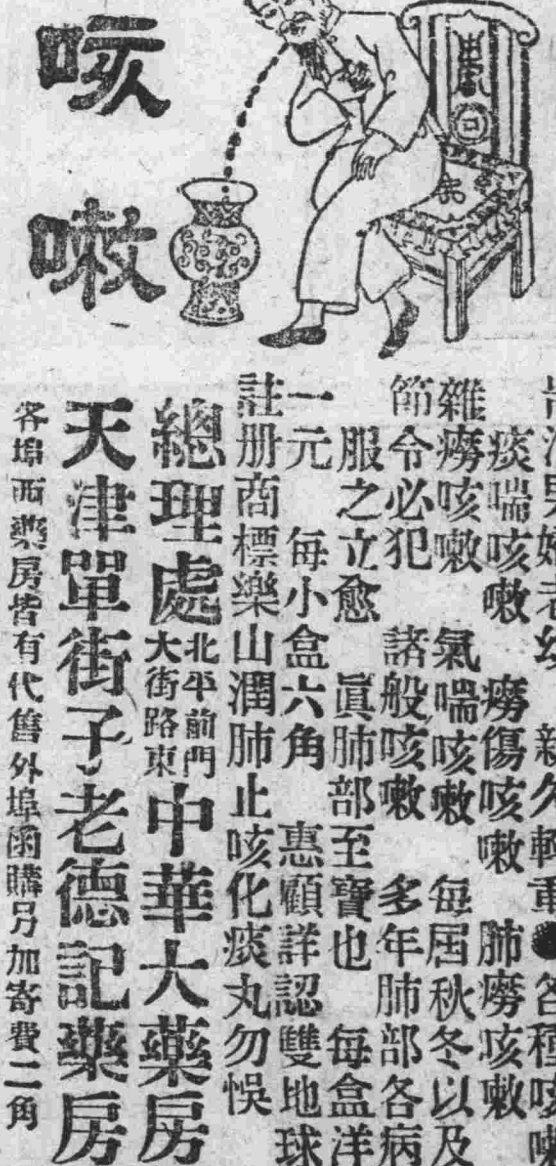 咳嗽
治男婦老幼 新久輕重●各種咳嗽
痰喘咳嗽 癆傷咳嗽 肺癆咳嗽
雜癆咳嗽 氣喘咳嗽 每屆秋冬以及
節令必犯 諸般咳嗽 多年肺部各病
服之立愈 眞肺部至寶也 每盒洋
一元 每小盒六角 惠顧詳認雙地球
註册商標樂山潤肺止咳化痰丸勿悞
總理處 北平前門大街路東 中華大藥房
天津單街子老德記藥房
各埠西藥房皆有代售外埠函購另加寄費二角